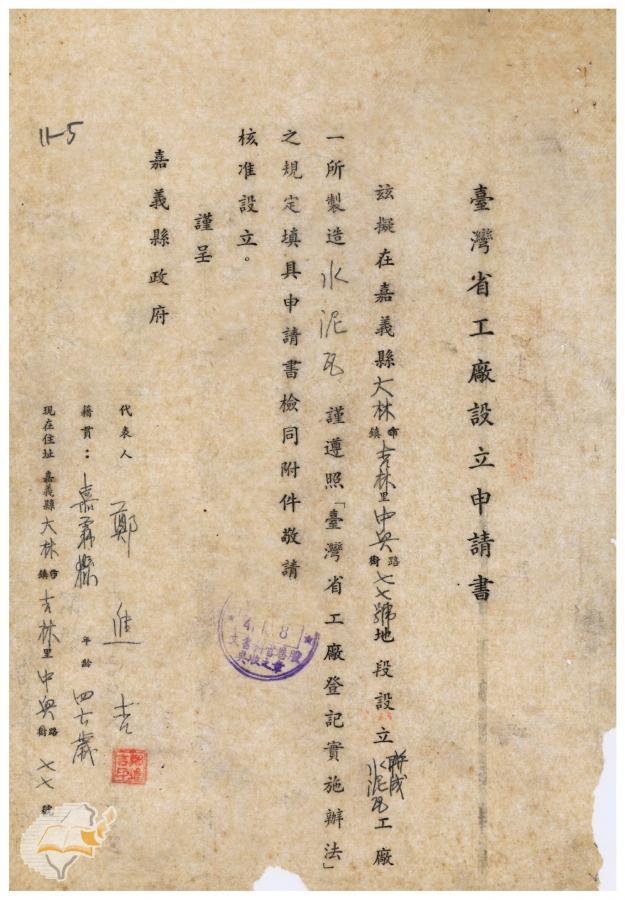 臺灣省工廠設立申請書
玆擬在嘉義縣大林鎮市吉林里中興街路七七號地段設立聯成水泥瓦工廠
一所製造水泥瓦謹遵照「臺灣省工廠登記實施辦法」
之規定填具申請書檢同附件敬請
核准設立。
謹呈
嘉義縣政府
代表人 鄭進吉
籍貫：嘉義縣 年齡 四七歲
現在住址 嘉義縣大林鎮市吉林里中興街路七七號
11-5